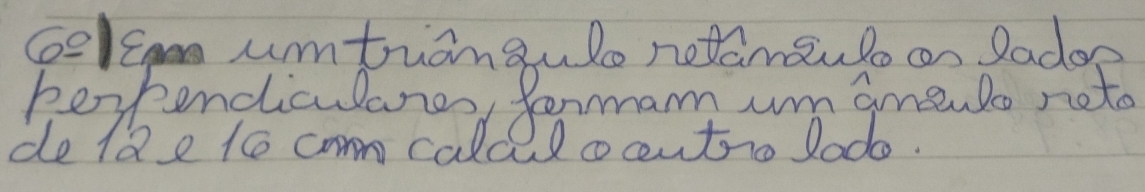 6º) Em um triângulo retângulo os lados
perpendiculares, formam um ângulo reto
de 12 e 16 cm calcul o outro lado.